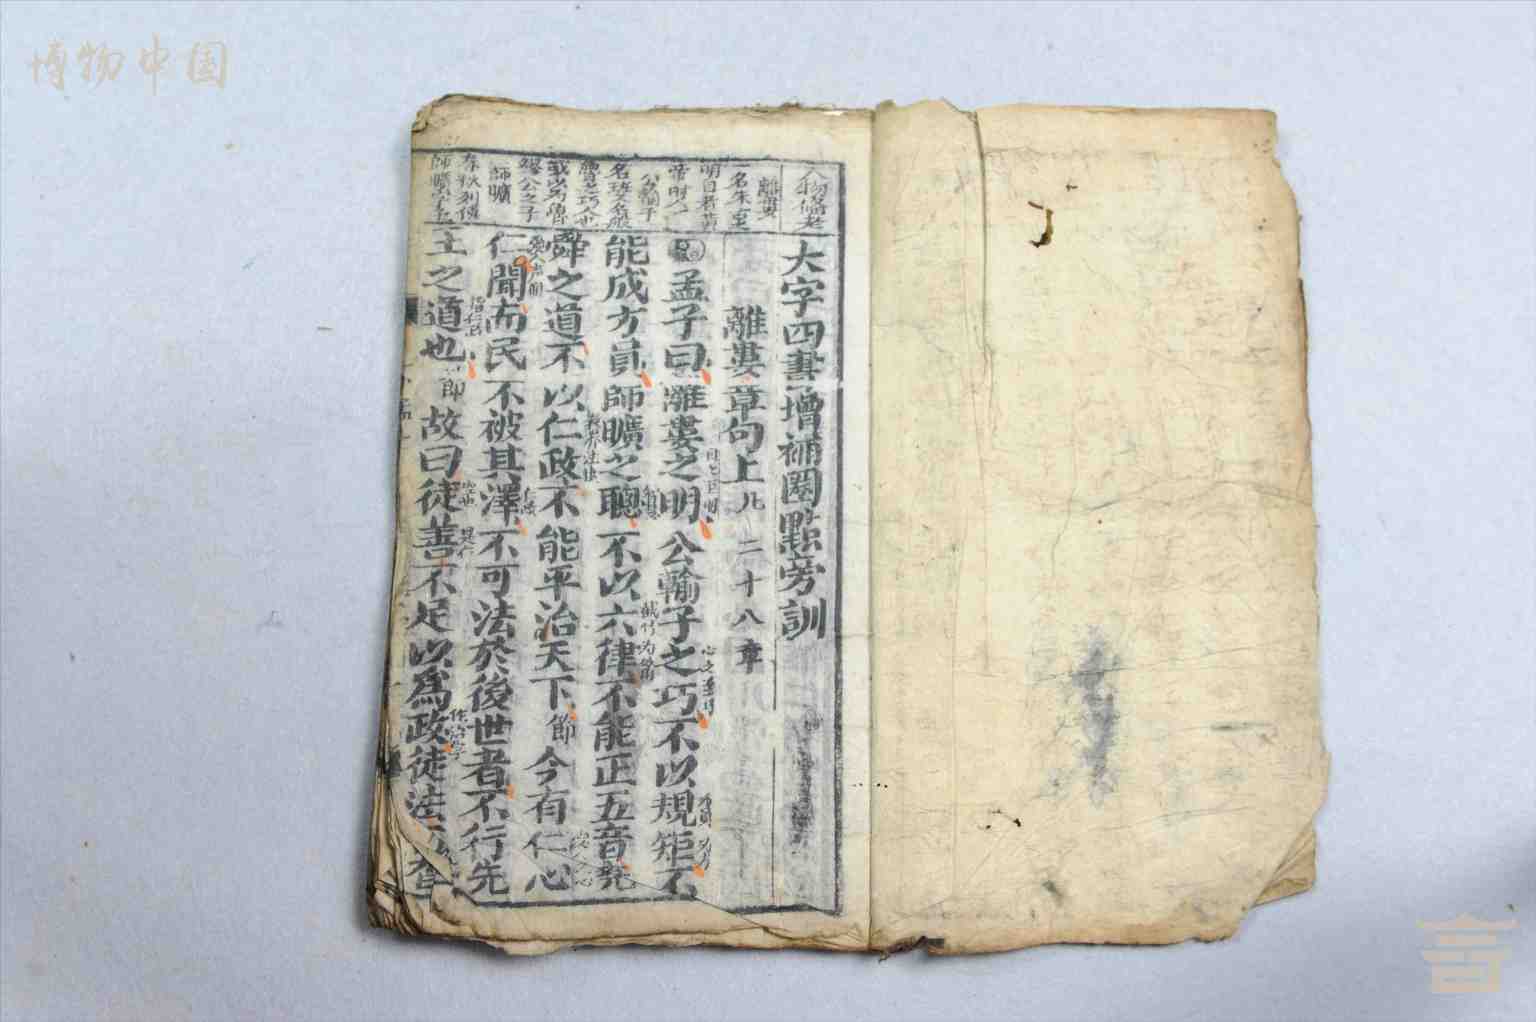 博物中国
人物備考
離婁
一名朱 黃
明目者黃
帝時人
公輸子
名班 名般
魯之巧人也
或以為魯
穆公之子
師曠
春秋列傳
師曠字子
大字四書增補圈點旁訓
離婁章句上凡二十八章
孟子曰離婁之明公輸子之巧不以規矩不
能成方員師曠之聰不以六律不能正五音堯
舜之道不以仁政不能平治天下節今有仁心
仁聞而民不被其澤不可法於後世者不行先
王之道也節故曰徒善不足以爲政徒法不
截竹為筩